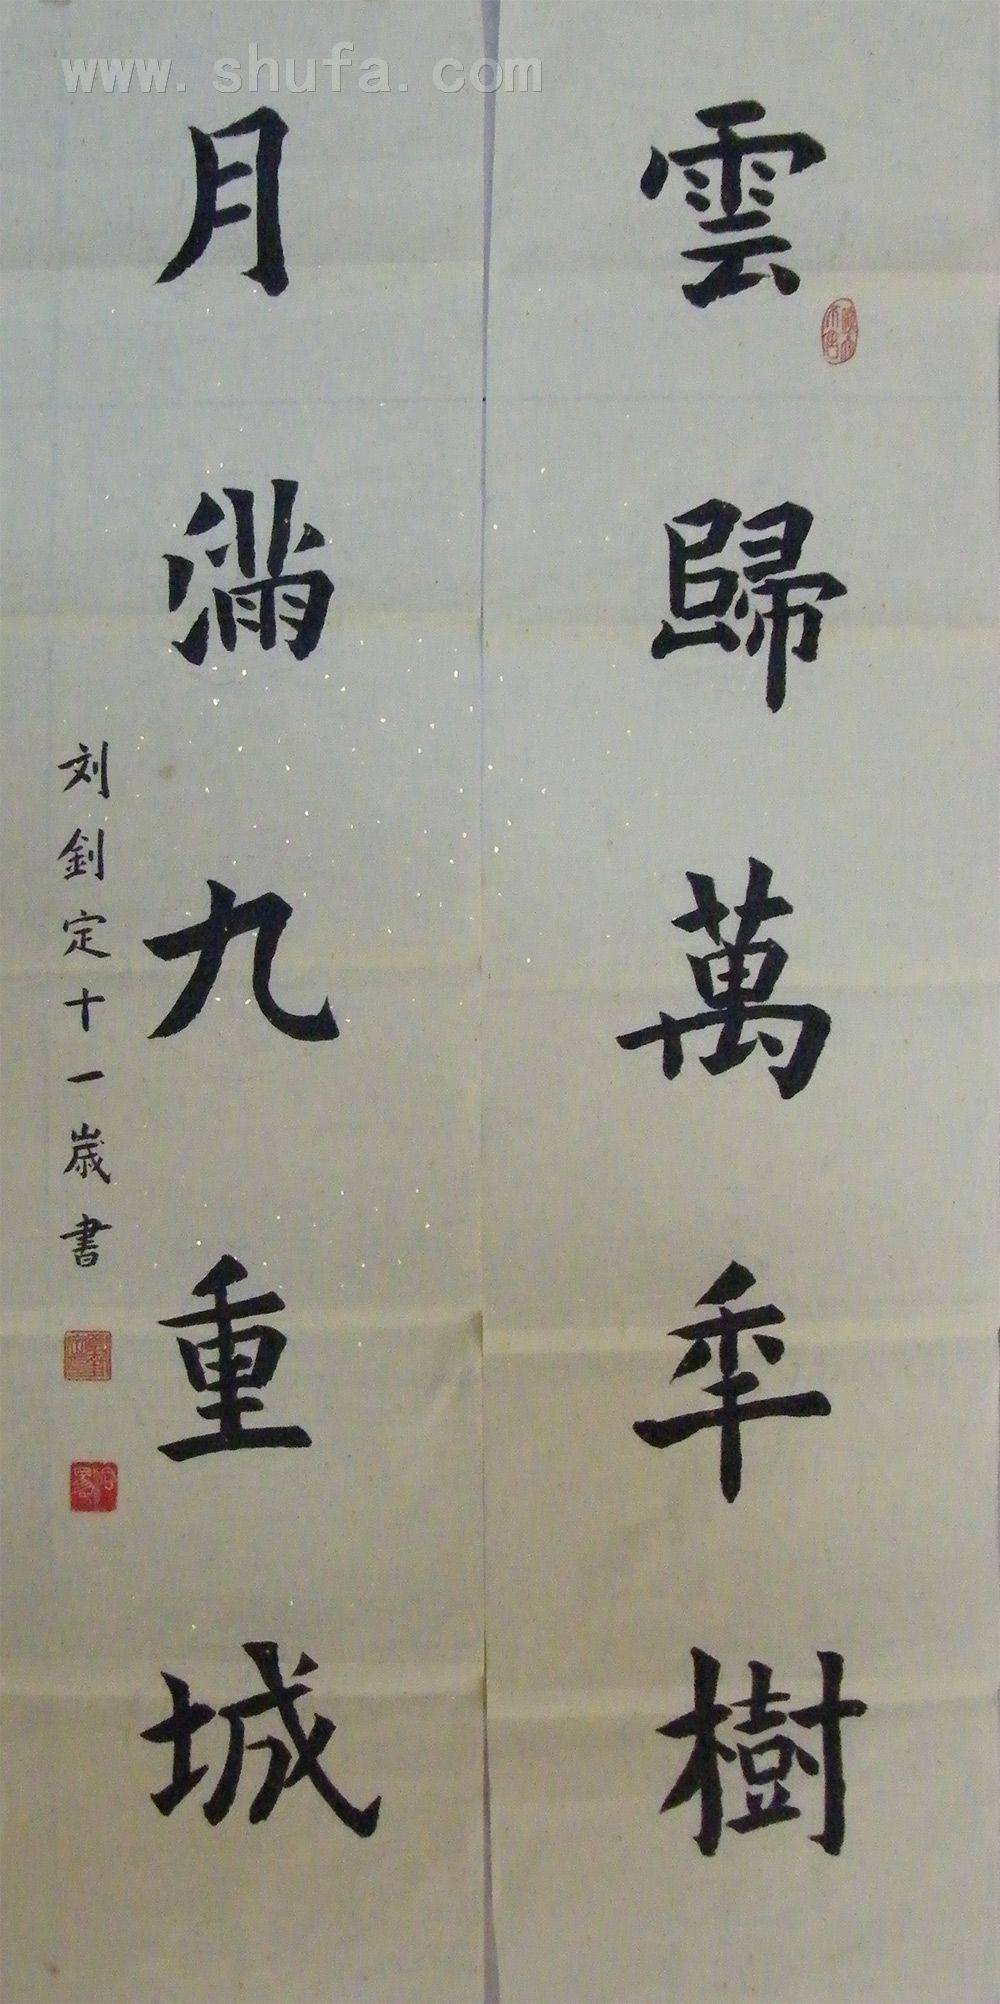 www.shufa.com
雲歸萬年樹
月滿九重城
刘釗定十一歲書